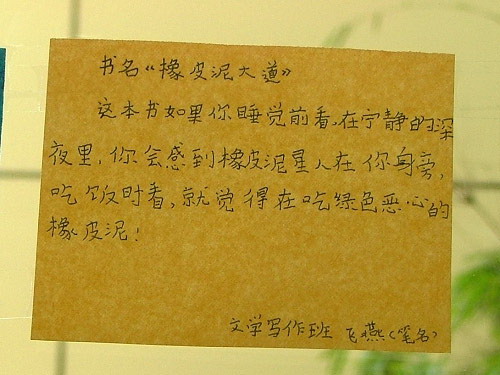 书名《橡皮泥大道》
这本书如果你睡觉前看,在宁静的深
夜里,你会感到橡皮泥星人在你身旁,
吃饭时看,就觉得在吃绿色恶心的
橡皮泥!
文学写作班 飞燕(笔名)